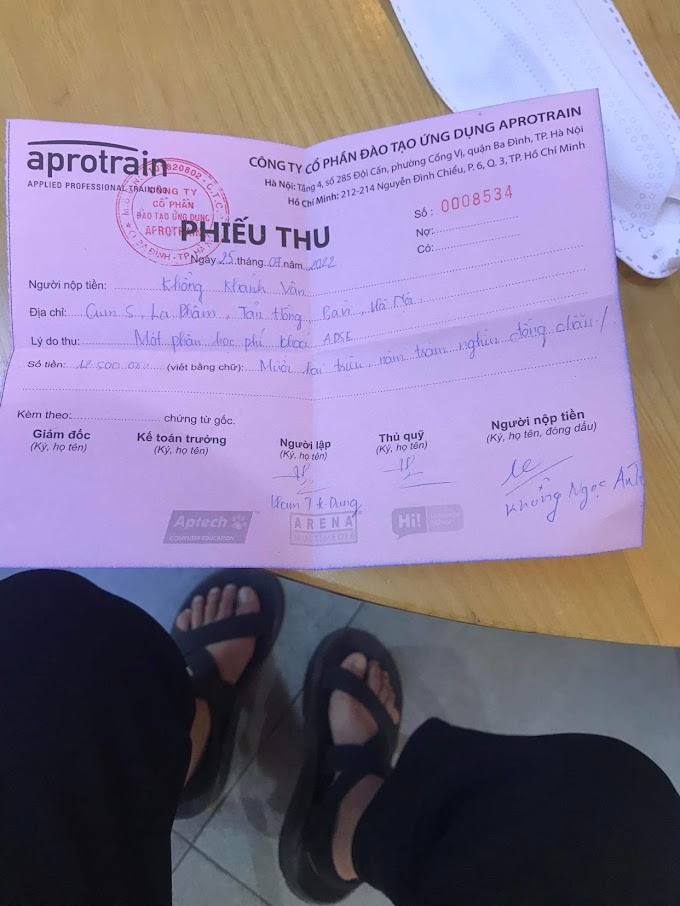 aprotrain
APPLIED PROFESSIONAL TRAINING
CÔNG TY CỔ PHẦN ĐÀO TẠO ỨNG DỤNG APROTRAIN
Hà Nội: Tầng 4, số 285 Đội Cấn, phường Cống Vị, quận Ba Đình, TP. Hà Nội
Hồ Chí Minh: 212-214 Nguyễn Đình Chiểu, P. 6, Q. 3, TP. Hồ Chí Minh
CÔNG TY
CỔ PHẦN
ĐÀO TẠO ỨNG DỤNG
APROTRAIN
PHIẾU THU
Số : 0008534
Nợ:
Có:
Ngày 25 tháng 07 năm 2022
Người nộp tiền: Khổng Khánh Vân
Địa chỉ: Cụm 5, La Phẩm, Tản Hồng, Hà Nội
Lý do thu: Một phần học phí khoá ADSE
Số tiền: 12 500 000 (viết bằng chữ): Mười hai triệu, năm trăm nghìn đồng chẵn /
Kèm theo: chứng từ gốc.
Giám đốc Kế toán trưởng Người lập Thủ quỹ Người nộp tiền
(Ký, họ tên) (Ký, họ tên) (Ký, họ tên) (Ký, họ tên) (Ký, họ tên, đóng dấu)
Phạm T K Dung Khổng Ngọc Anh
Aptech ARENA Hi!
COMPUTER EDUCATION MULTIMEDIA